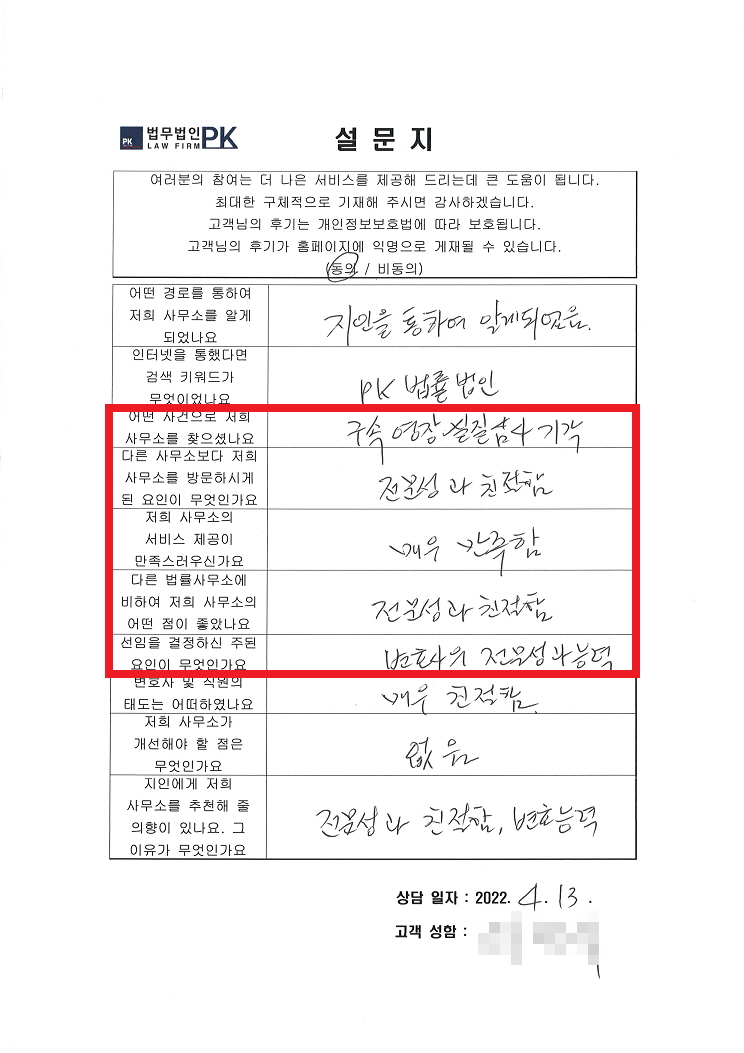 PK 법무법인 PK
LAW FIRM
설문지
여러분의 참여는 더 나은 서비스를 제공해 드리는데 큰 도움이 됩니다.
최대한 구체적으로 기재해 주시면 감사하겠습니다.
고객님의 후기는 개인정보보호법에 따라 보호됩니다.
고객님의 후기가 홈페이지에 익명으로 게재될 수 있습니다.
(동의 / 비동의)
어떤 경로를 통하여
저희 사무소를 알게
되었나요
지인을 통하여 알게되었음.
인터넷을 통했다면
검색 키워드가
무엇이었나요
PK 법률법인
어떤 사건으로 저희
사무소를 찾으셨나요
구속 영장 실질심사 기각
다른 사무소보다 저희
사무소를 방문하시게
된 요인이 무엇인가요
전문성과 친절함
저희 사무소의
서비스 제공이
만족스러우신가요
매우 만족함
다른 법률사무소에
비하여 저희 사무소의
어떤 점이 좋았나요
전문성과 친절함
선임을 결정하신 주된
요인이 무엇인가요
변호사의 전문성과 능력
변호사 및 직원의
태도는 어떠하였나요
매우 친절함.
저희 사무소가
개선해야 할 점은
무엇인가요
없음
지인에게 저희
사무소를 추천해 줄
의향이 있나요. 그
이유가 무엇인가요
전문성과 친절함, 변호능력
상담 일자 : 2022. 4. 13.
고객 성함 :